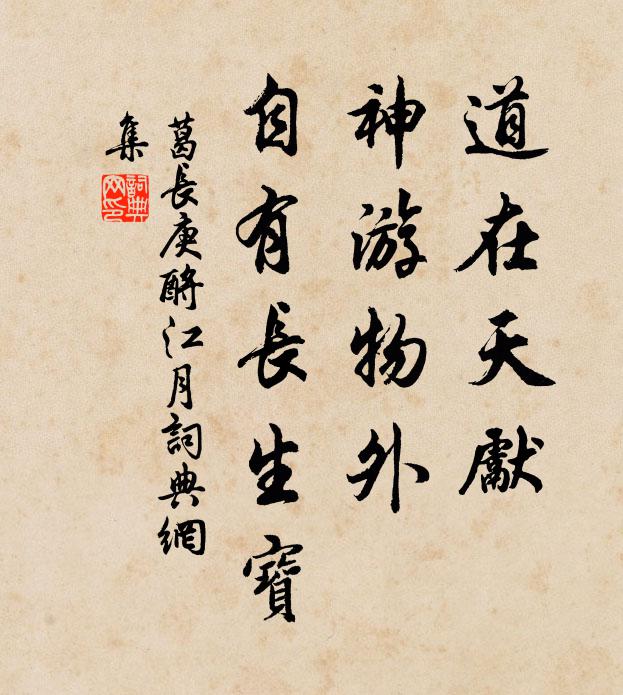 道在天獻
神游物外
自有長生寶
葛長庚酹江月詞典網
集
詞典
网印